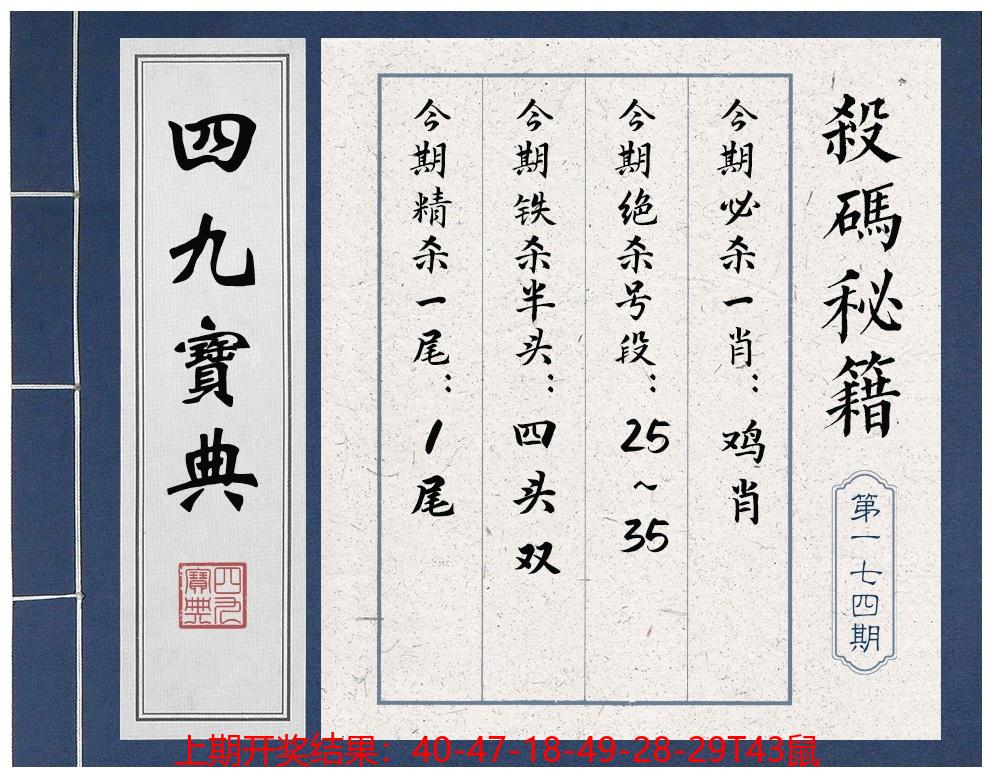 殺碼秘籍
第一七四期
今期必杀一肖：鸡肖
今期绝杀号段：25~35
今期铁杀半头：四头双
今期精杀一尾：1尾
四九寶典
四九寶典
上期开奖结果：40-47-18-49-28-29T43鼠